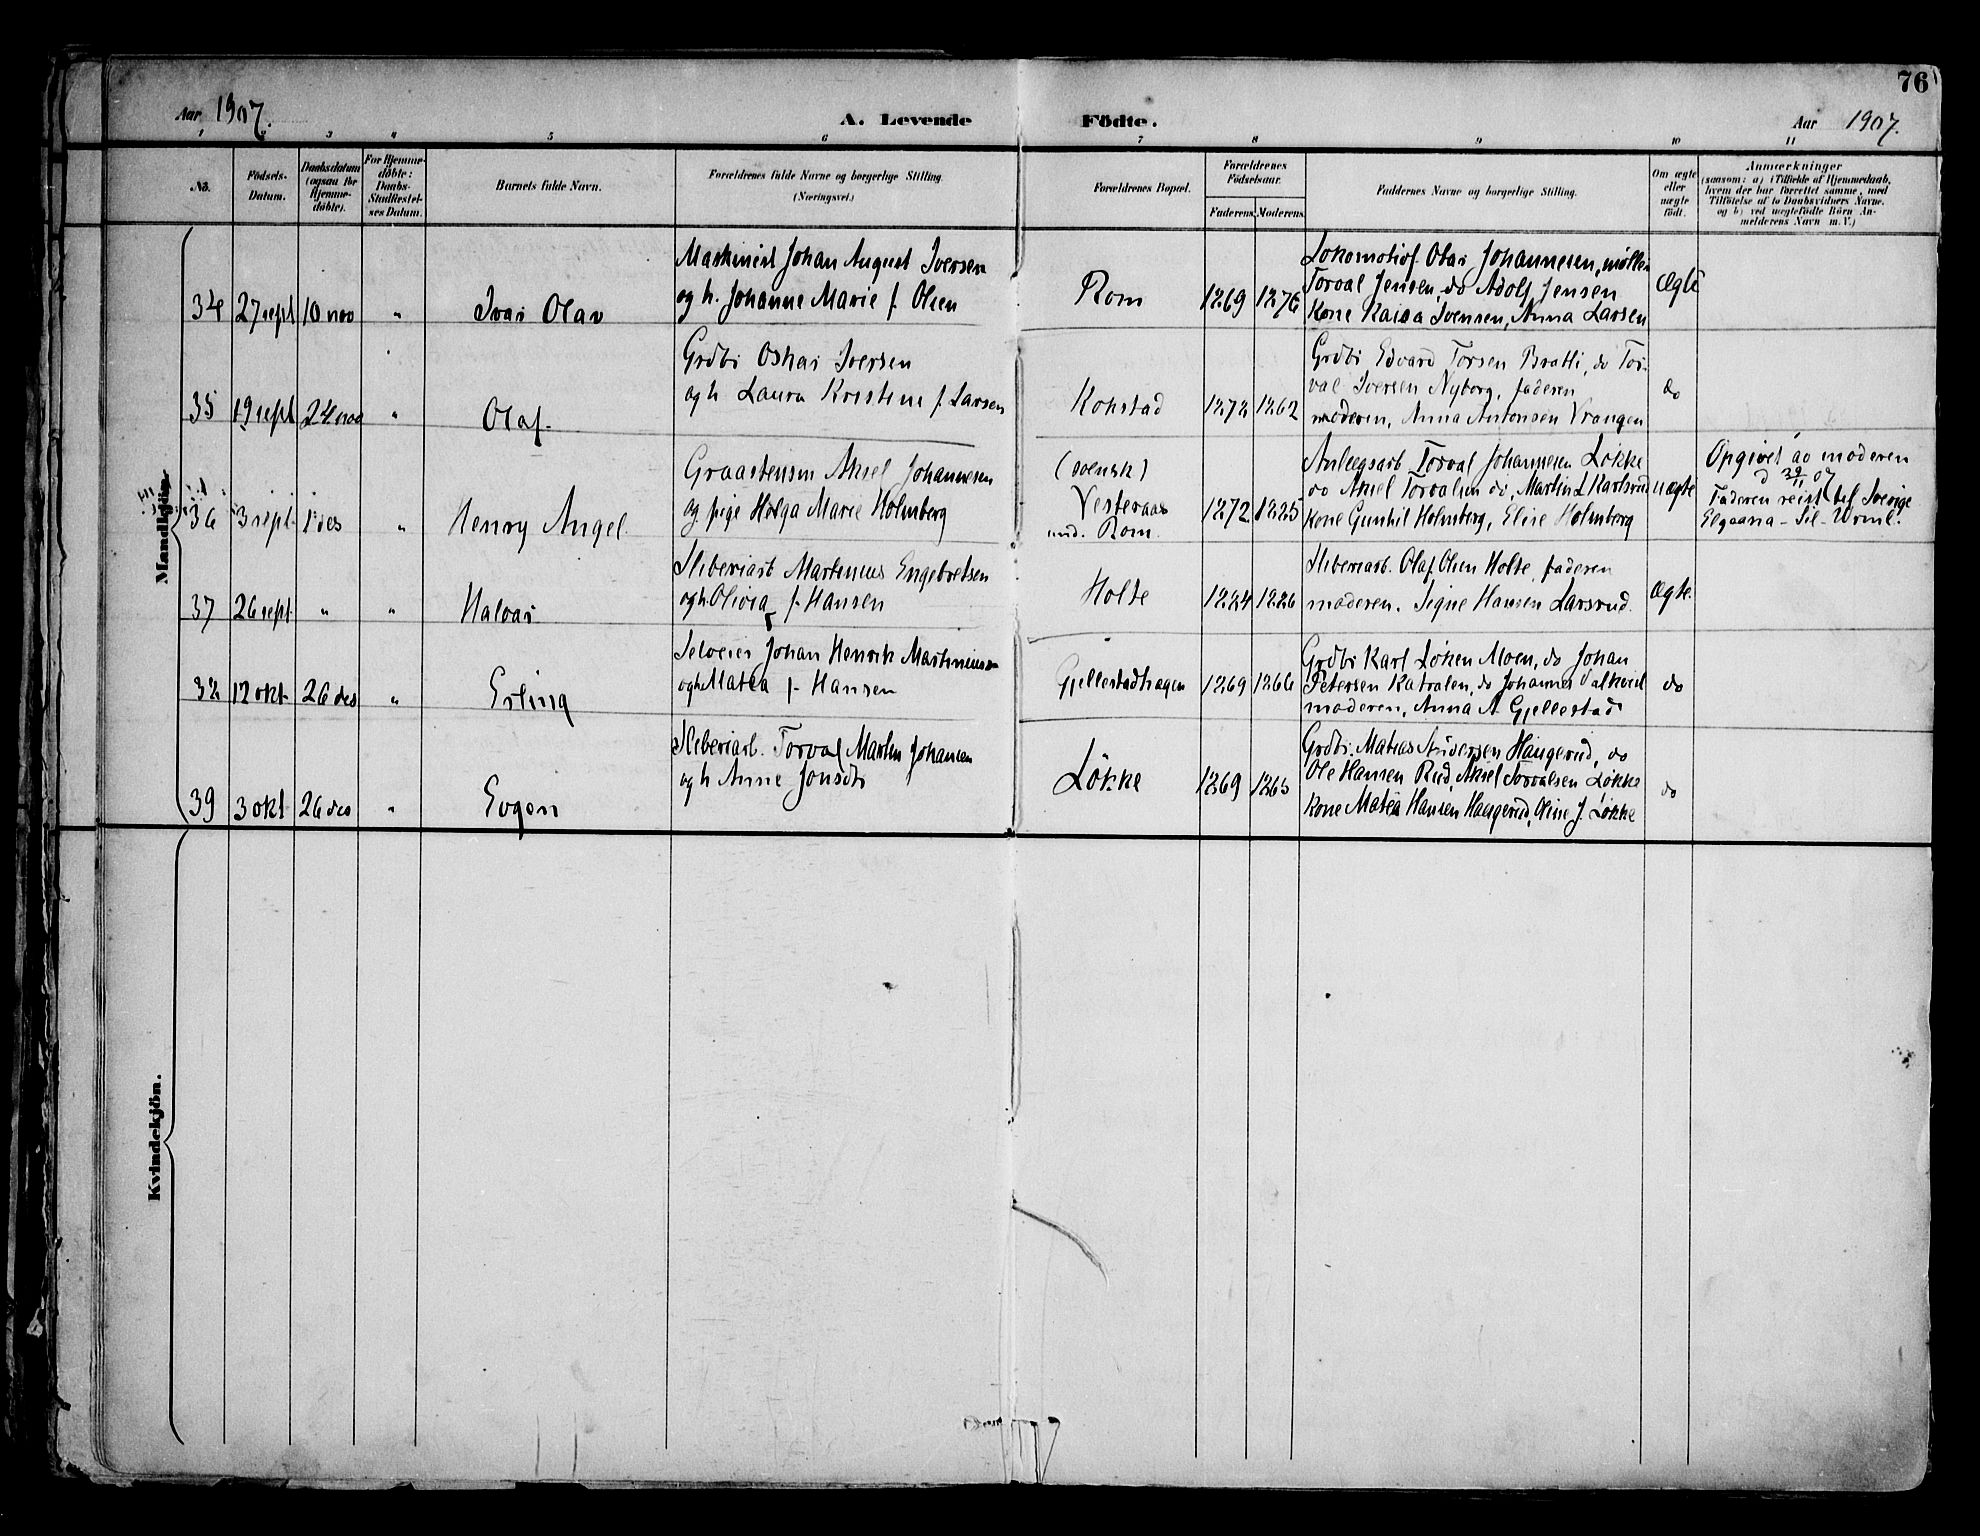 76
Aar 1907.
A. Levende Födte.
Aar 1907.
1 2 3 " 5 6 7 8 9 10 11
No.
Födsels-Datum.
Daabsdatum (ogsaa for Hjemme-döbte).
For Hjemme-döbte: Daabs-Stadfæstel-ses Datum.
Barnets fulde Navn.
Forældrenes fulde Navne og borgerlige Stilling. (Næringsvei.)
Forældrenes Bopæl.
Forældrenes Födselsaar.
Faderens. Moderens.
Faddernes Navne og borgerlige Stilling.
Om ægte eller uægte födt.
Anmærkninger
(saasom: a) i Tilfælde af Hjemmedaab,
hvem der har forrettet samme, med
Tilföielse af to Daabsvidners Navne.
og b) ved uægtefödte Börn An-
melderens Navn m. V.)
Mandkjön.
34 27 sept 10 nov " Ivar Olav
Maskinist Johan August Iversen
og h. Johanne Marie f. Olsen
Rom 1869 1876
Lokomotivf. Olav Johannesen, møller
Torval Jensen, do Adolf Jensen
Kone Kaisa Svensen, Anna Larsen
Ægte
35 19 sept 24 nov " Olaf.
Grdbr Oskar Iversen
og h Laura Kristine f. Larsen
Kokstad 1872 1862
Grdbr Edvard Torsen Bratli, do Tor-
val Iversen Nyborg, faderen
moderen, Anna Antonsen Vrangen
do
36 3 sept 1 des " Henry Angel.
Graastensm Aksel Johannesen
og pige Helga Marie Holmberg
(svensk)
Vesteraas
und. Rom. 1872 1885
Anlegsarb Torval Johannesen Løkke
do Aksel Torvalsen do, Martin L Karlsrud
kone Gunhil Holmberg, Elise Holmberg
uægte
Opgivet av moderen
d 29/11 07
Faderen reist tef Sverige
Elgaana - Sil - Wrml.
37 26 sept " " Halvar
Sliberiarb Martinius Engebretsen
og h. Olivia f. Hansen
Holte 1884 1886
Sliberiarb. Olaf Olsen Holte, faderen
moderen. Signe Hansen Larsrud.
Ægte.
38 12 okt 26 des " Erling
Selveier Johan Henrik Martiniusen
og h Matea f. Hansen
Gjellestadhagen 1869 1866
Grdbr Karl Løken Moen, do Johan
Petersen Katralen, do Johannes Valkvil
moderen, Anna A. Gjellestad
do
39 3 okt 26 des " Evgen
Sliberiarb. Torval Martin Johansen
og h Anne Jonsdtr
Løkke 1869 1865
Grdbr. Matias Andersen Haugerud, do
Ole Hansen Rud, Aksel Torvalsen Løkke
kone Matea Hansen Haugerud, Oline J. Løkke
do
Kvindekjön.